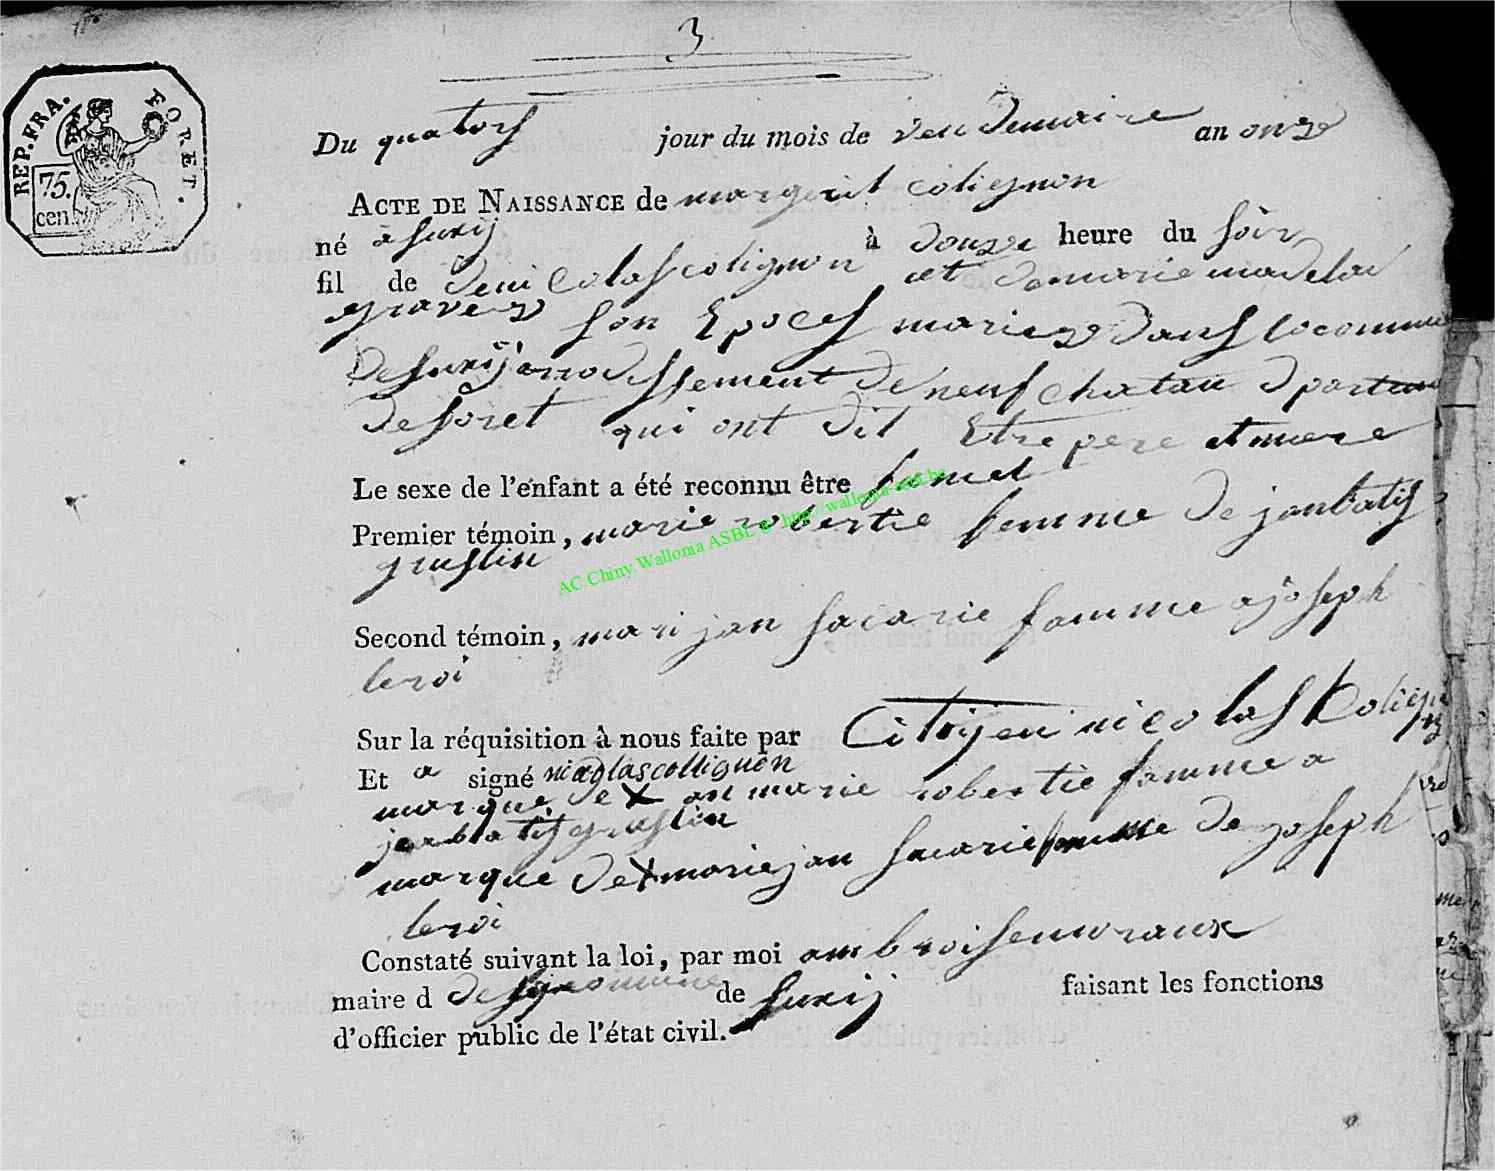 3
REP. FRA. FORET.
75. cen.
Du quators jour du mois de vendemaire an onze
ACTE DE NAISSANCE de margerit colignon
né a suxÿ à douze heure du soir
fil de de nicolas colignon et de marie madelai
gravez son Epoces mariez dans la commune
de suxÿ arrodissement de neufchatau dpartem
de foret qui ont dit Etre pere et mere
Le sexe de l'enfant a été reconnu être femel
Premier témoin, marie robertie femme de janbatis
gruslin
AC.Chiny.Wallonia ASBL © http://wallonia-asbl.be
Second témoin, mari jan sacarie famme a joseph
leroi
Sur la réquisition à nous faite par Citoÿen nicolas Colign
Et a signé nicolas collignon
marque de X an marie robertie famme a
janbatis gruslin
marque de X marie jan sacarie famme de joseph
leroi
Constaté suivant la loi, par moi ambroise moraux
maire d de la commune de suxÿ faisant les fonctions
d'officier public de l'état civil.